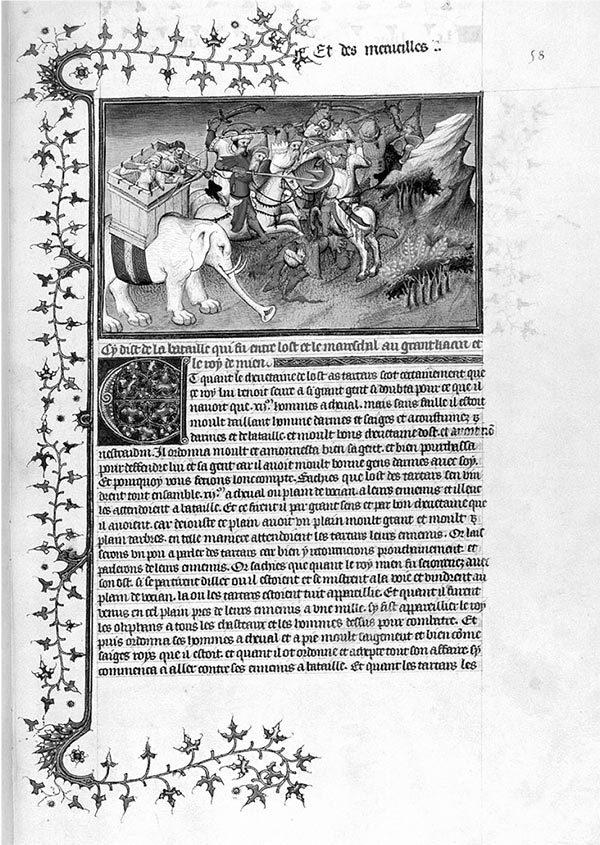 Et des merueilles
58
Cy dist de la bataille qui fu entre lost et le mareschal au grant kaan et
le roy de mien.
Et quant le cheuetaine de lost as tartars scot certainement que
ce roy lui venoit seure a si grant gent si doubta pour ce que il
nauoit que .xij.m hommes a cheual. mais sans faille il estoit
moult vaillant homme darmes et saiges et acoustumez
darmes et de bataille. et moult bons cheuetaine dost. et auoit nō
nestradin. Il ordonna moult et amonnesta bien sa gent. et bien pourchassa
pour deffendre lui et sa gent car il auoit moult bonne gens darmes auec soy.
Et pourquoy vous feroie lonc compte. Saches que lost des tartars sen vin
drent tout ensamble .xij.m a cheual ou plain de vocian. a leurs ennemis et illeuc
les attendoient a bataille. Et ce firent il par grant sens et par bon cheuetaine que
il auoient. car deiouste ce plain auoit vn plain moult grant et moult
plain darbres. en telle maniere attendoient les tartars leurs ennemis. Or lais
serons vn pou a parler des tartars car bien y retournerons prouchainement. et
parlerons de leurs ennemis. Or saches que quant le roy mien fu seiournez auec
son ost. si se partirent dillec ou il estoient et se mistrent a la voie et vindrent au
plain de vocian. la ou les tartars estoient tuit appareillie. Et quant il furent
venus en cel plain pres de leurs ennemis a vne mille. sy fist appareillier le roy
les oliphans a tous les chasteaux et les hommes dessus pour combatre. Et
puis ordonna ses hommes a cheual et a pie moult saigement et bien cōme
saiges roys que il estoit. et quant il ot ordonne et acepte tout son affaire. sy
commenca a aller contre ses ennemis a bataille. Et quant les tartars les